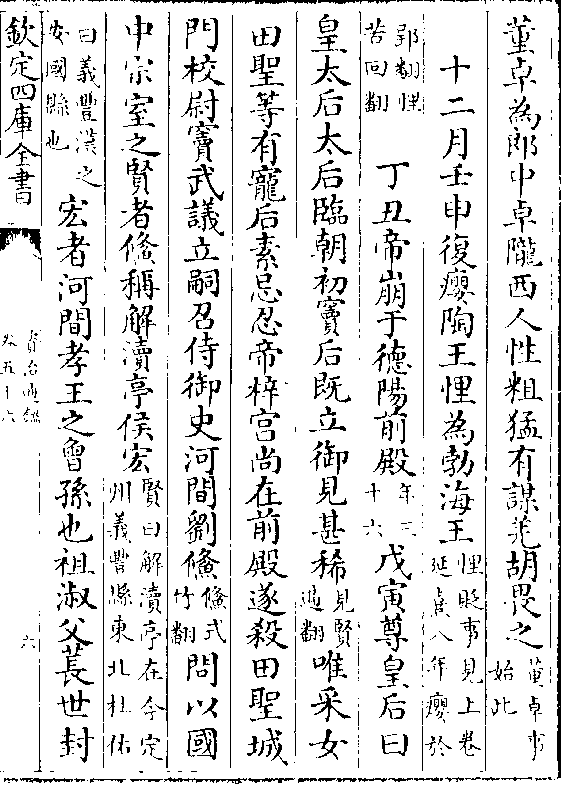 董卓為郎中卓隴西人性粗猛有謀羌胡畏之董卓事始此
十二月壬申復癭陶王悝為勃海王悝貶事見上卷延熹八年癭於
郢翻悝苦回翻丁丑帝崩于德陽前殿年三十六戊寅尊皇后曰
皇太后太后臨朝初竇后既立御見甚稀見賢遍翻唯采女
田聖等有寵后素忌忍帝梓宫尚在前殿遂殺田聖城
門校尉竇武議立嗣召侍御史河間劉儵儵式竹翻問以國
中宗室之賢者儵稱解瀆亭侯宏賢曰解瀆亭在今定州義豐縣東北杜佑
曰義豐漢之安國縣也宏者河間孝王之曾孫也祖淑父萇世封
欽定四庫全書
資治通鑑
卷五十六
六